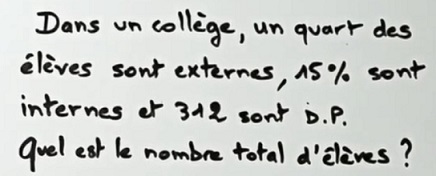 Dans un collège, un quart des
élèves sont externes, 15% sont
internes et 312 sont D.P.
Quel est le nombre total d'élèves ?